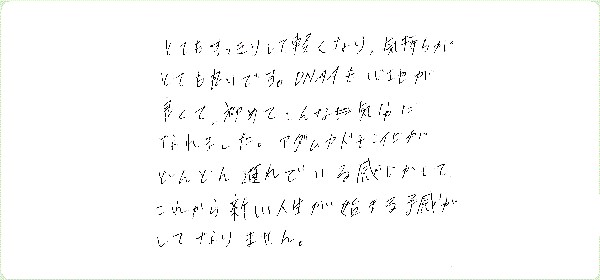 とてもすっきりして軽くなり、気持ちが
とても良いです。DNAも
て、初めてこんな気分に
なれました。アダムカドモン
どんどん遅れている感じがして
これから新しい人生が始まる予感が
してなりません。